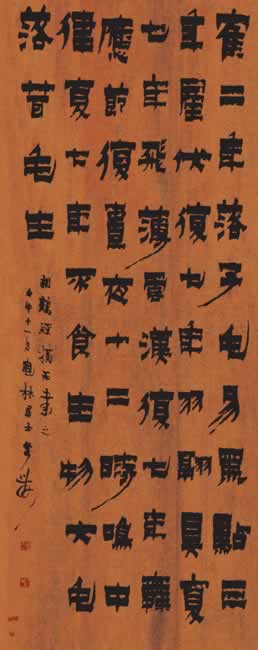 寉二年落子毛易黑點三
年產伏復七年羽翮具復
七年飛薄雲漢復七年舞
應節復晝夜十二時鳴中
律復七年不食生物大毛
落茸毛生
相鶴經書之
年十一月林居士